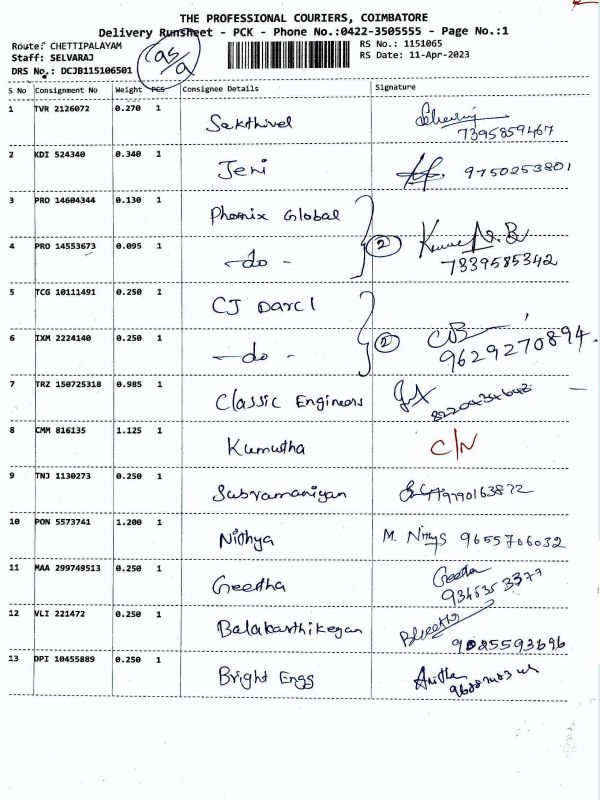 THE PROFESSIONAL COURIERS, COIMBATORE
Delivery Runsheet - PCK - Phone No.:0422-3505555 - Page No.:1
Route: CHETTIPALAYAM RS No.: 1151065
Staff: SELVARAJ RS Date: 11-Apr-2023
DRS No.: DCJB115106501
S No Consignment No Weight PCS Consignee Details Signature
1 TVR 2126072 0.270 1 Sakthivel
7395859467
2 KDI 524340 0.340 1 Jeni 9750253801
3 PRO 14604344 0.130 1 Phoenix Global
4 PRO 14553673 0.095 1 -do- 2
7339585342
5 TCG 10111491 0.250 1 CJ Darcl
6 IXM 2224140 0.250 1 -do- 2
9629270894
7 TRZ 150725318 0.985 1 Classic Engineers
8 CMM 816135 1.125 1 Kumutha C/N
9 TNJ 1130273 0.250 1 Subramaniyan
10 PON 5573741 1.200 1 Nithya M. 9655706032
11 MAA 299749513 0.250 1 Geetha Geetha
12 VLI 221472 0.250 1 Balakarthikeyan
9025593696
13 DPI 10455889 0.250 1 Bright Engg Anitha